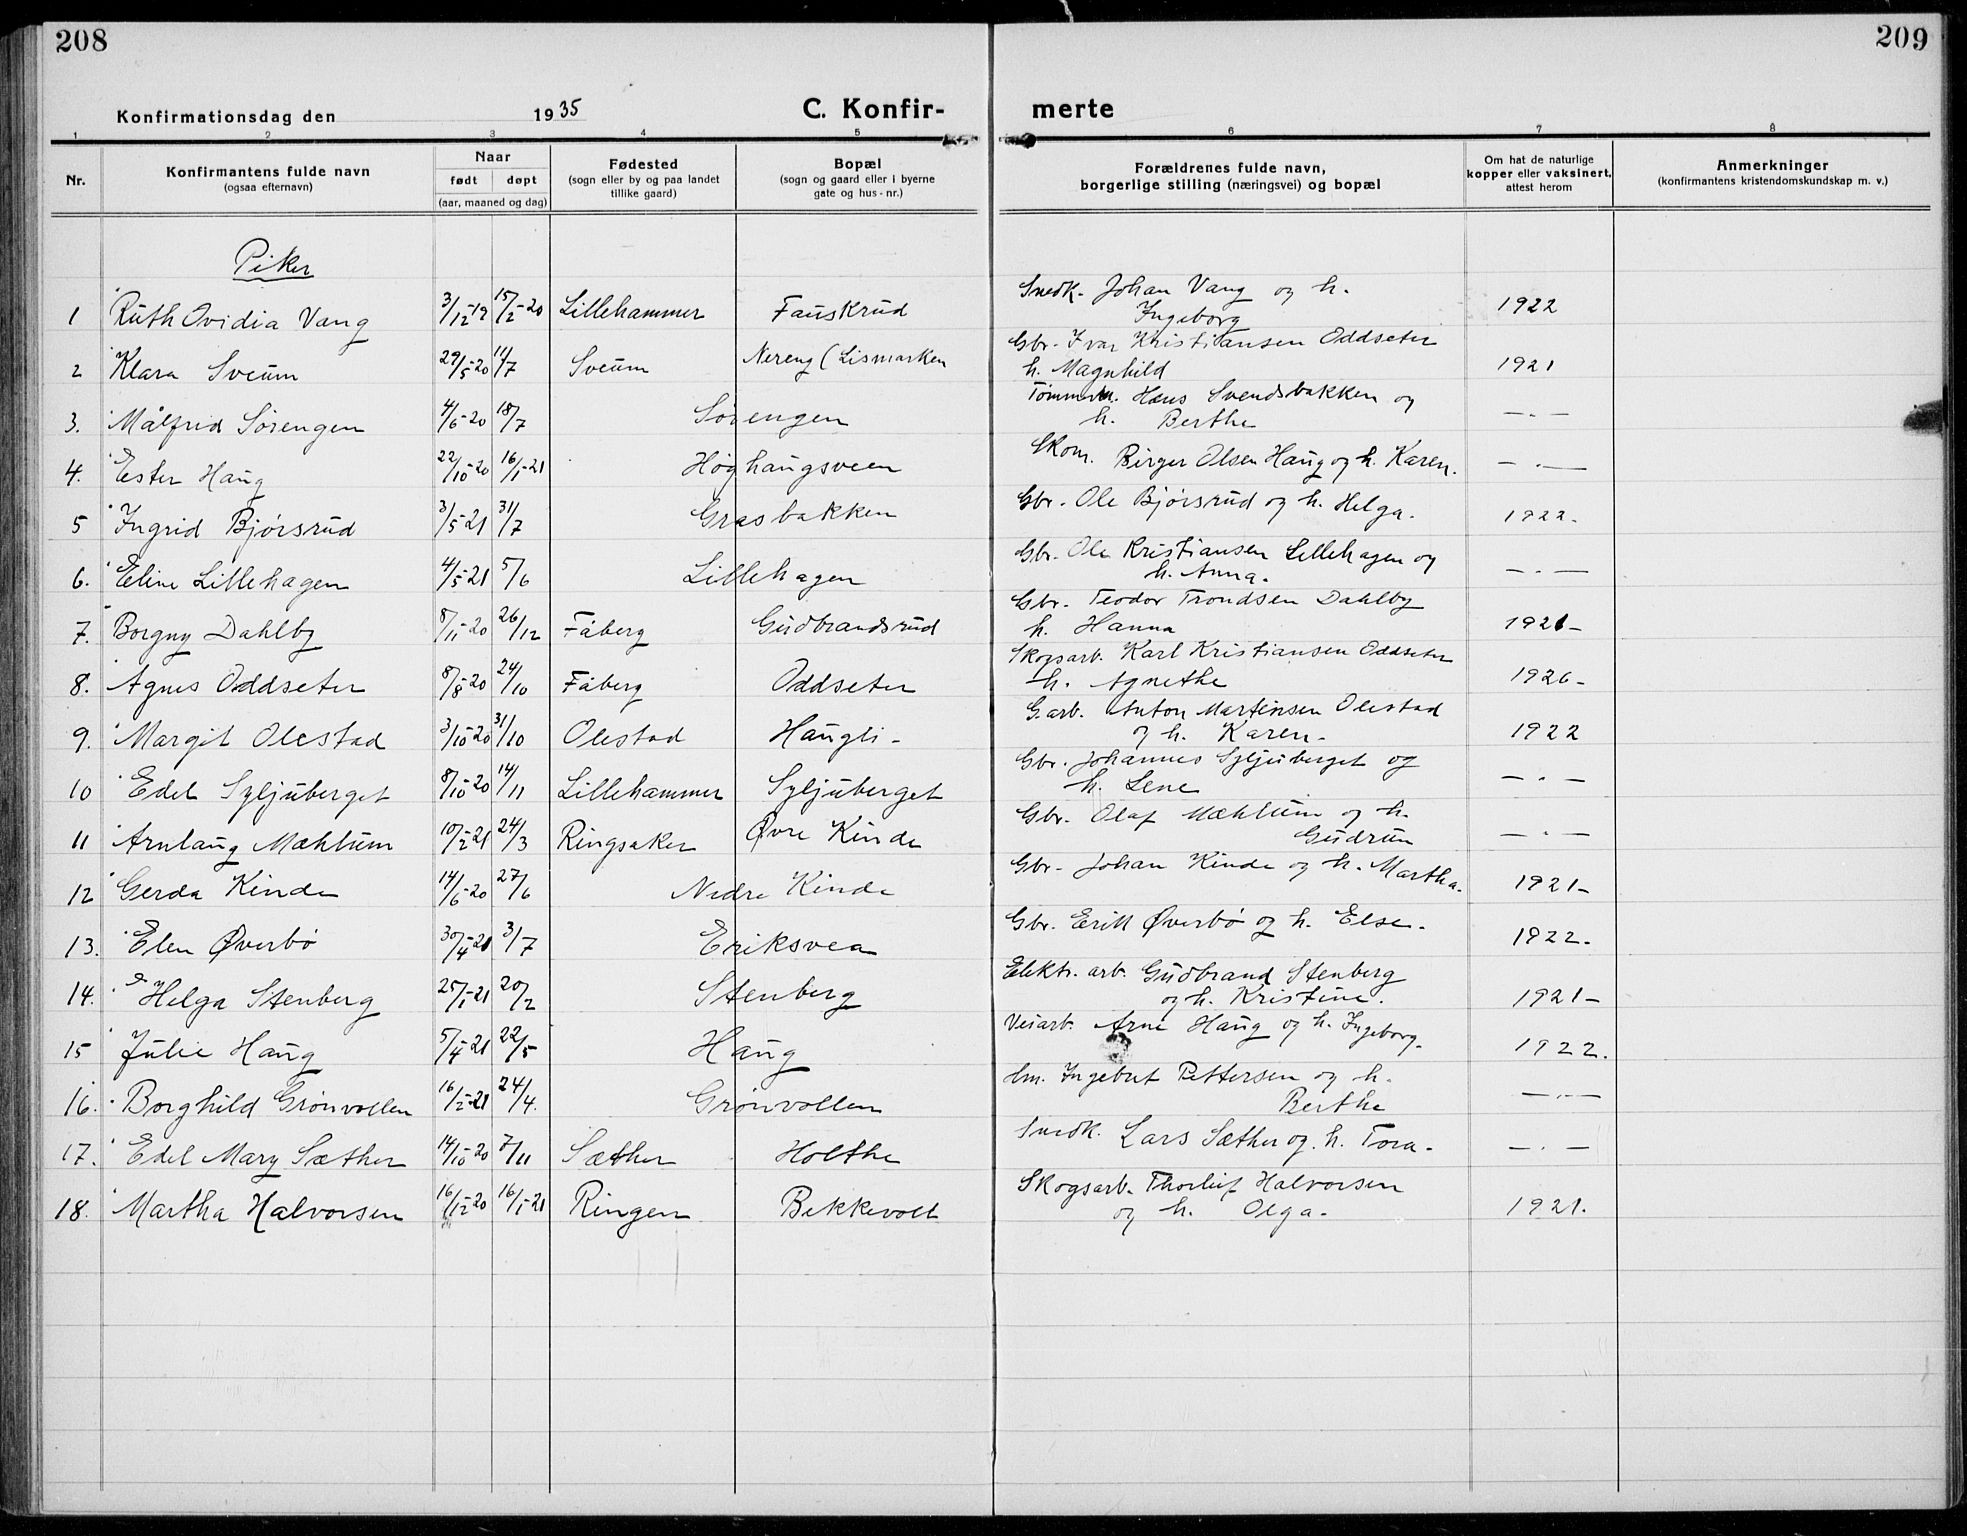 208
209
Konfirmationsdag den 1935
C. Konfir-
merte
1 2 3 4 5 6 7 8
Nr.
Konfirmantens fulde navn
(ogsaa efternavn)
Naar
født døpt
(aar, maaned og dag)
Fødested
(sogn eller by og paa landet
tillike gaard)
Bopæl
(sogn og gaard eller i byerne
gate og hus-nr.)
Forældrenes fulde navn,
borgerlige stilling (næringsvei) og bopæl
Om hat de naturlige
kopper eller vaksinert,
attest herom
Anmerkninger
(konfirmantens kristendomskundskap m. v.)
Piker
1 Ruth Ovidia Vang 3/12-19 15/2-20 Lillehammer Fauskrud Snedk. Johan Vang og h.
Ingeborg 1922
2 Klara Sveum 29/5-20 11/7 Sveum Nereng (Lismarken Gbr. Ivar Kristiansen Oddseter
h. Magnhild 1921
3. Målfrid Sørengen 4/6-20 18/7 Sørengen Tømmerm. Hans Svendsbakken og
h. Berthe —.—
4. Ester Haug 22/10-20 16/1-21 Høghaugsveen Skom. Birger Olsen Haug og h. Karen. —.—
5 Ingrid Bjørsrud 3/5-21 31/7 Grasbakken Gbr. Ole Bjørsrud og h. Helga. 1922.
6. Eline Lillehagen 4/5-21 5/6 Lillehagen Gbr. Ole Kristiansen Lillehagen og
h. Anna. —.—
7. Borgny Dahlby 8/11-20 26/12 Fåberg Gudbrandsrud Gbr. Teodor Trondsen Dahlby
h. Hanna 1921-
8. Agnes Oddseter 8/8-20 24/10 Fåberg Oddseter Skogsarb. Karl Kristiansen Oddseter
h. Agnethe 1926-
9. Margit Olestad 3/10-20 31/10 Olestad Haugli- G.arb. Anton Martinsen Olestad
og h. Karen. 1922
10 Edel Syljuberget 8/10-20 14/11 Lillehammer Syljuberget Gbr. Johannes Syljuberget og
h. Lene —.—
11 Arnlaug Mæhlum 10/2-21 24/3 Ringsaker Øvre Kinde Gbr. Olaf Mæhlum og h.
Gudrun —.—
12 Gerda Kinde 14/6-20 27/6 Nedre Kinde Gbr. Johan Kinde og h. Martha. 1921-
13. Elen Øverbø 30/4-21 3/7 Eriksvea Gbr. Erik Øverbø og h. Else. 1922.
14. Helga Stenberg 25/1-21 20/2 Stenberg Elektr. arb. Gudbrand Stenberg
og h. Kristine. 1921-
15 Julie Haug 5/4-21 22/5 Haug Veiarb. Arne Haug og h. Ingeborg. 1922.
16. Borghild Grønvollen 16/2-21 24/4. Grønvollen Hm. Ingebret Pettersen og h.
Berthe —.—
17. Edel Mary Sæther 14/10-20 7/11 Sæther Holthe Snedk. Lars Sæther og h. Tora. —.—
18. Martha Halvorsen 16/12-20 16/1-21 Ringen Bekkevolt Skogsarb. Thorleif Halvorsen
og h. Olga. 1921.